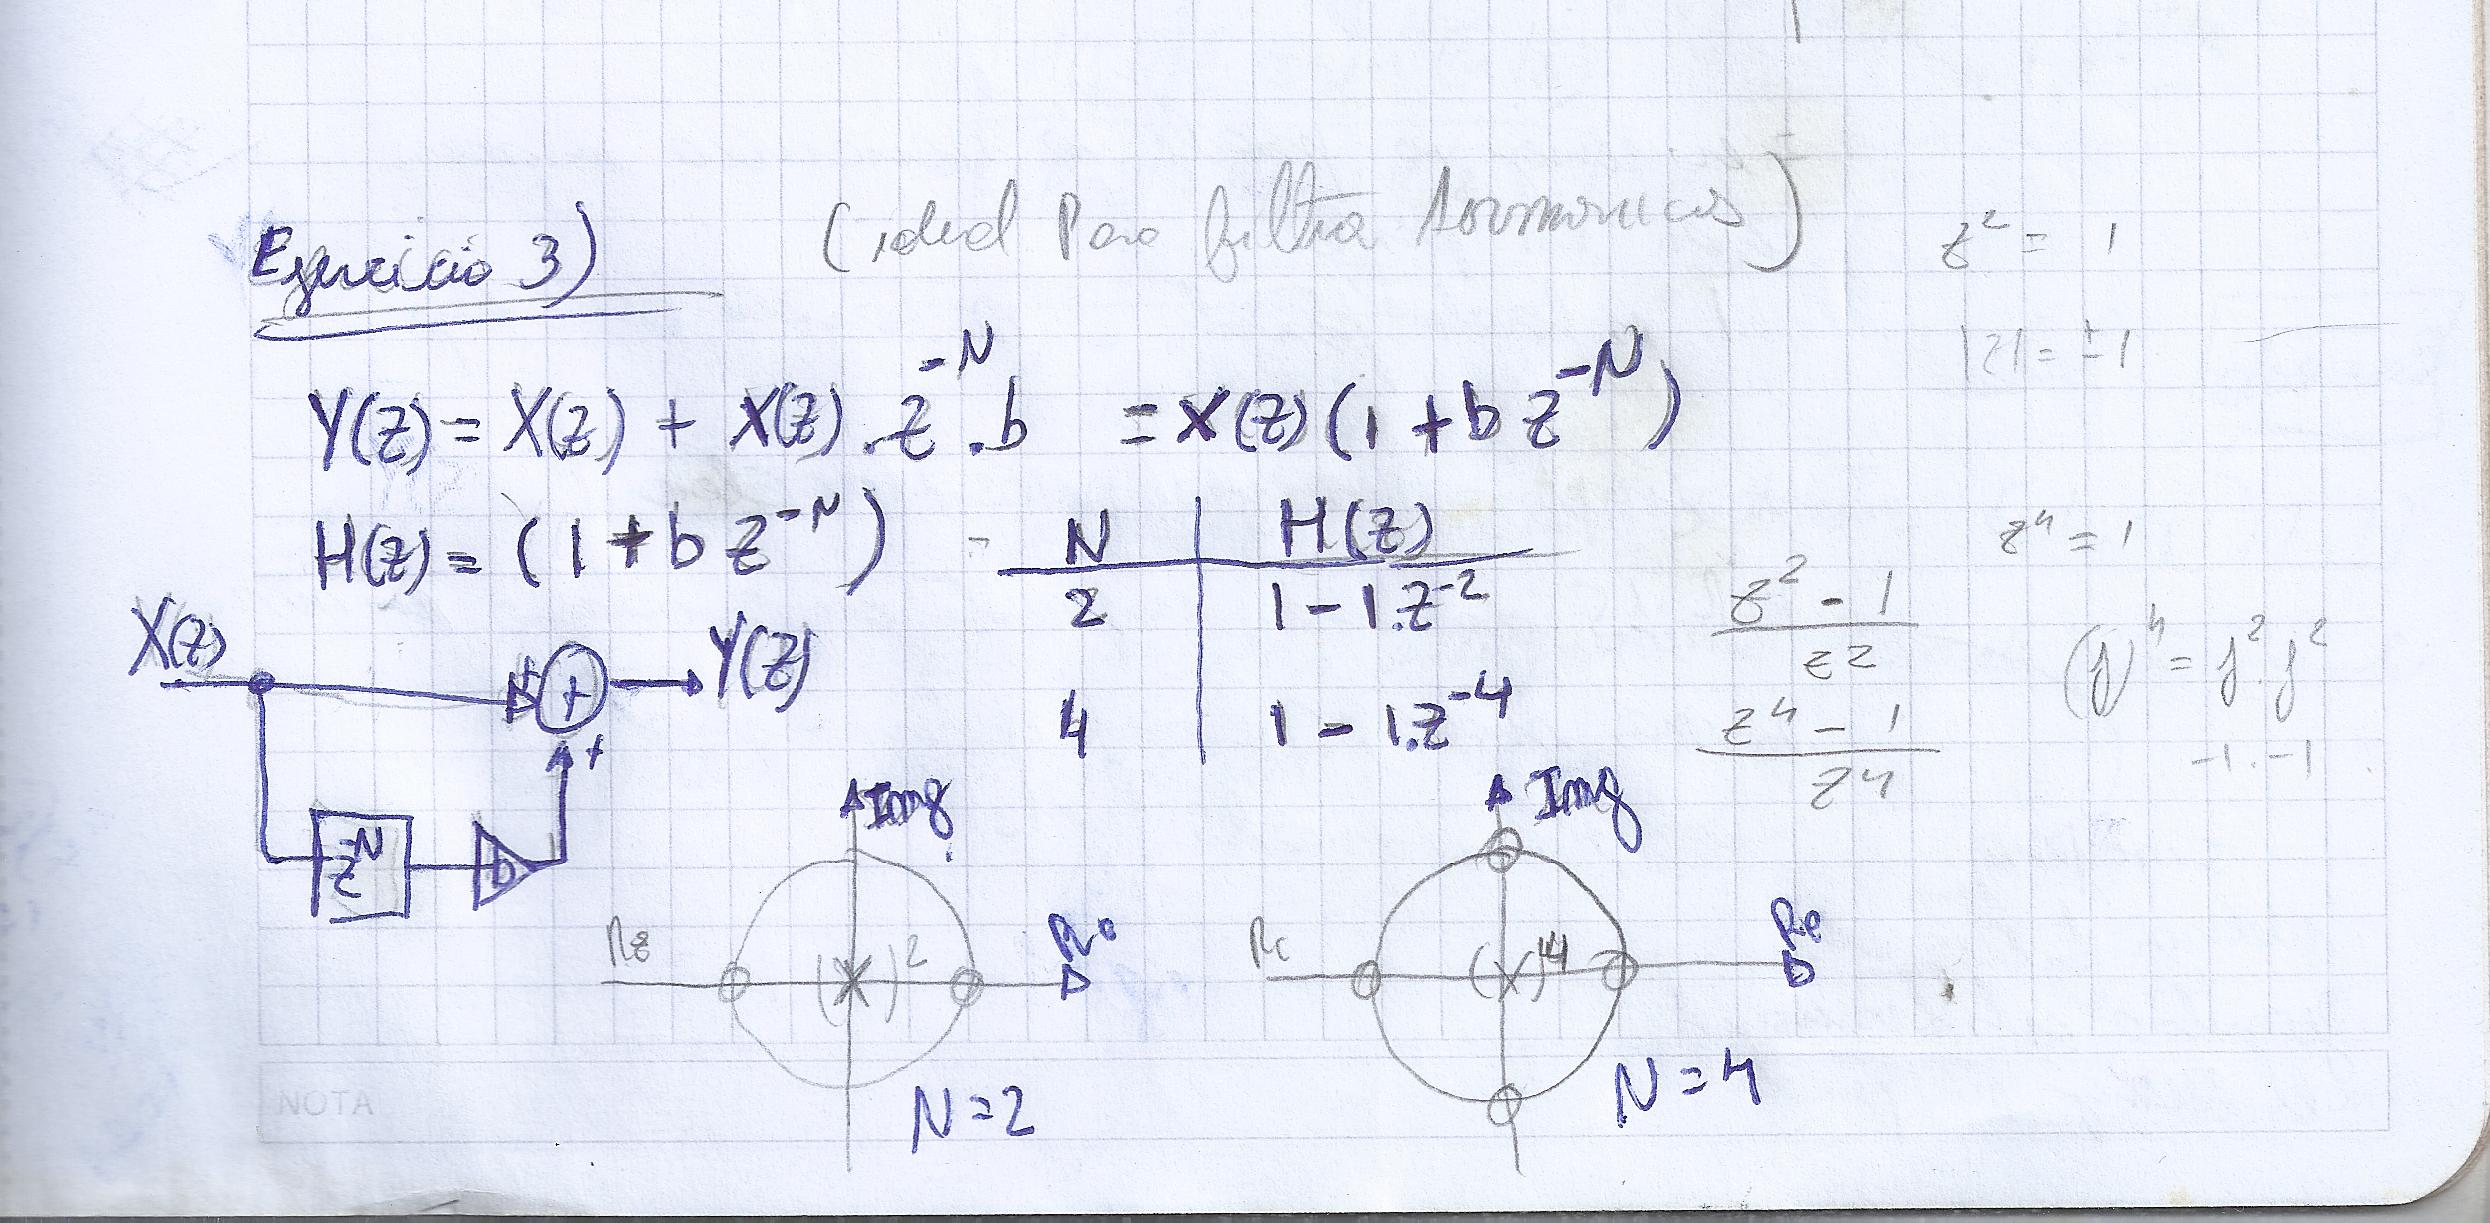 Ejercicio 3) (ideal Para filtra Armonicos)
z² = 1
|z| = ±1
Y(z) = X(z) + X(z) . z^-N . b = X(z) (1 + b z^-N)
H(z) = (1 + b z^-N)
N | H(z)
2 | 1 - 1.z^-2
4 | 1 - 1.z^-4
z⁴ = 1
z² - 1 / z²
z⁴ - 1 / z⁴
(j)⁴ = j² . j²
-1 . -1
X(z)
+
+
Y(z)
+
z^-N
b
Img
Re
Re
(x)²
N = 2
Img
Re
Re
(x)⁴
N = 4
NOTA